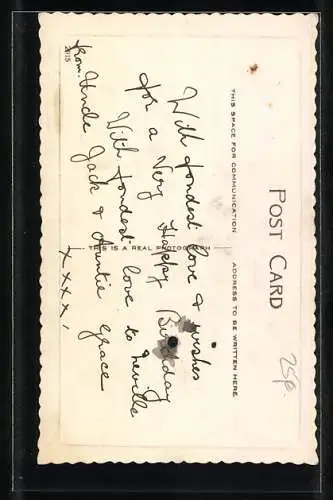 POST CARD
THIS SPACE FOR COMMUNICATION
ADDRESS TO BE WRITTEN HERE.
THIS IS A REAL PHOTOGRAPH
With fondest love & wishes
for a Very Happy Birthday
With fondest love to Neville
from. Uncle Jack & Auntie Grace
x x x x.
25p.